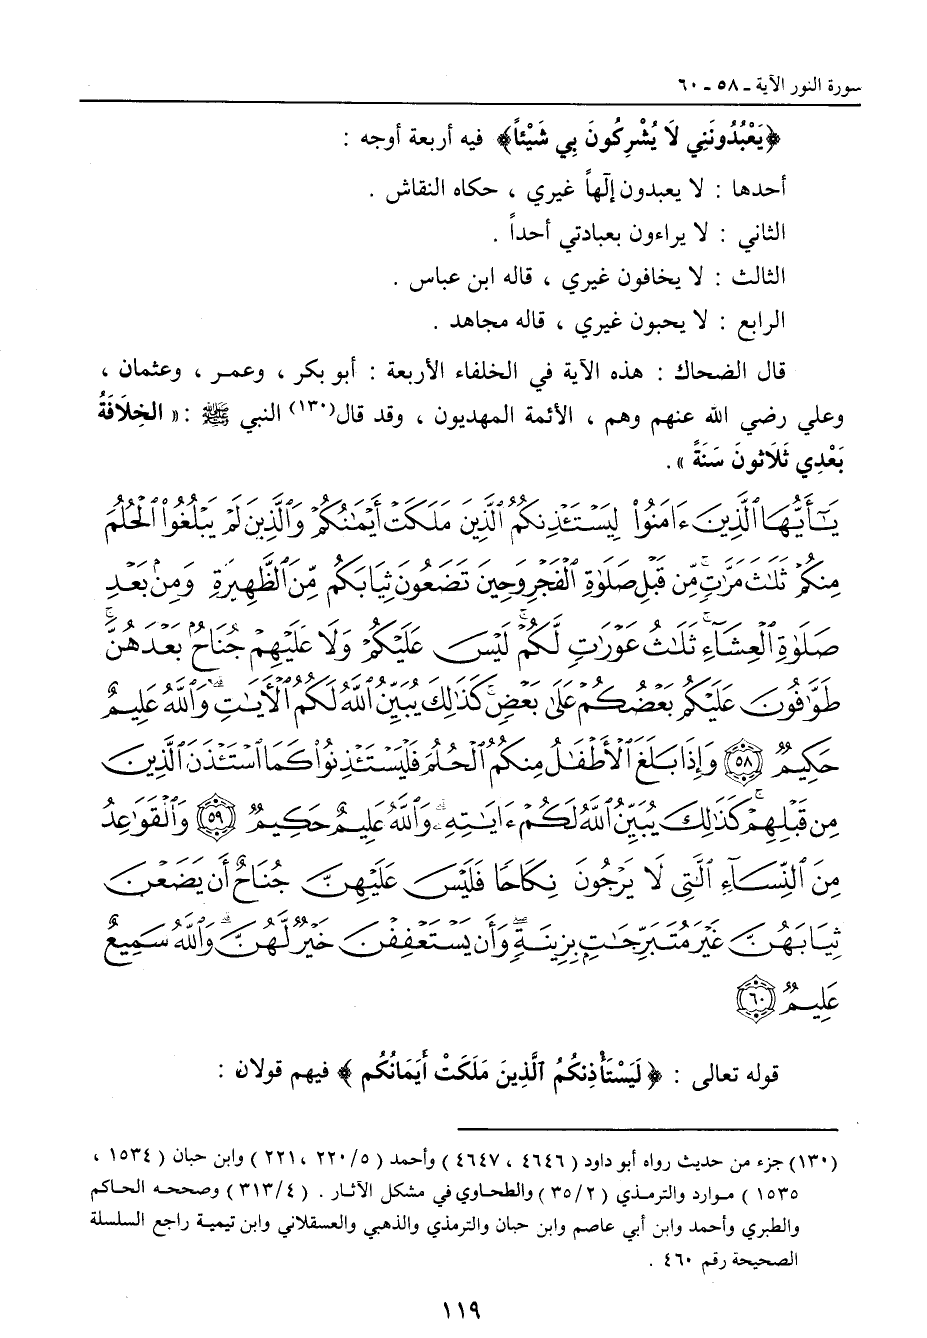 سورة النور الآية ـ ٥٨ ـ ٦٠
﴿يَعْبُدُونَنِي لَا يُشْرِكُونَ بِي شَيْئاً﴾ فيه أربعة أوجه :
أحدها : لا يعبدون إلٰهاً غيري ، حكاه النقاش .
الثاني : لا يراءون بعبادتي أحداً .
الثالث : لا يخافون غيري ، قاله ابن عباس .
الرابع : لا يحبون غيري ، قاله مجاهد .
قال الضحاك : هذه الآية في الخلفاء الأربعة : أبو بكر ، وعمر ، وعثمان ،
وعلي رضي الله عنهم وهم ، الأئمة المهديون ، وقد قال(١٣٠) النبي ﷺ :« الخِلَافَةُ
بَعْدِي ثَلَاثونَ سَنَةً ».
يَٰٓأَيُّهَا ٱلَّذِينَ ءَامَنُواْ لِيَسْتَـْٔذِنكُمُ ٱلَّذِينَ مَلَكَتْ أَيْمَٰنُكُمْ وَٱلَّذِينَ لَمْ يَبْلُغُواْ ٱلْحُلُمَ
مِنكُمْ ثَلَٰثَ مَرَّٰتٍ ۚ مِّن قَبْلِ صَلَوٰةِ ٱلْفَجْرِ وَحِينَ تَضَعُونَ ثِيَابَكُم مِّنَ ٱلظَّهِيرَةِ وَمِنۢ بَعْدِ
صَلَوٰةِ ٱلْعِشَآءِ ۚ ثَلَٰثُ عَوْرَٰتٍ لَّكُمْ ۚ لَيْسَ عَلَيْكُمْ وَلَا عَلَيْهِمْ جُنَاحٌۢ بَعْدَهُنَّ ۚ
طَوَّٰفُونَ عَلَيْكُم بَعْضُكُمْ عَلَىٰ بَعْضٍ ۚ كَذَٰلِكَ يُبَيِّنُ ٱللَّهُ لَكُمُ ٱلْأٓيَٰتِ ۗ وَٱللَّهُ عَلِيمٌ
حَكِيمٌ ﴿٥٨﴾ وَإِذَا بَلَغَ ٱلْأَطْفَٰلُ مِنكُمُ ٱلْحُلُمَ فَلْيَسْتَـْٔذِنُواْ كَمَا ٱسْتَـْٔذَنَ ٱلَّذِينَ
مِن قَبْلِهِمْ ۚ كَذَٰلِكَ يُبَيِّنُ ٱللَّهُ لَكُمْ ءَايَٰتِهِۦ ۗ وَٱللَّهُ عَلِيمٌ حَكِيمٌ ﴿٥٩﴾ وَٱلْقَوَٰعِدُ
مِنَ ٱلنِّسَآءِ ٱلَّٰتِى لَا يَرْجُونَ نِكَاحًا فَلَيْسَ عَلَيْهِنَّ جُنَاحٌ أَن يَضَعْنَ
ثِيَابَهُنَّ غَيْرَ مُتَبَرِّجَٰتٍۭ بِزِينَةٍ ۖ وَأَن يَسْتَعْفِفْنَ خَيْرٌ لَّهُنَّ ۗ وَٱللَّهُ سَمِيعٌ
عَلِيمٌ ﴿٦٠﴾
قوله تعالى : ﴿ لَيَسْتَأْذِنكُمُ الَّذِينَ مَلَكَتْ أَيَمَانُكُم ﴾ فيهم قولان :
(١٣٠) جزء من حديث رواه أبو داود ( ٤٦٤٦ ، ٤٦٤٧ ) وأحمد ( ٥/ ٢٢٠ ، ٢٢١ ) وابن حبان ( ١٥٣٤ ،
١٥٣٥ ) موارد والترمذي ( ٢/ ٣٥ ) والطحاوي في مشكل الآثار . ( ٤/ ٣١٣ ) وصححه الحاكم
والطبري وأحمد وابن أبي عاصم وابن حبان والترمذي والذهبي والعسقلاني وابن تيمية راجع السلسلة
الصحيحة رقم ٤٦٠ .
١١٩